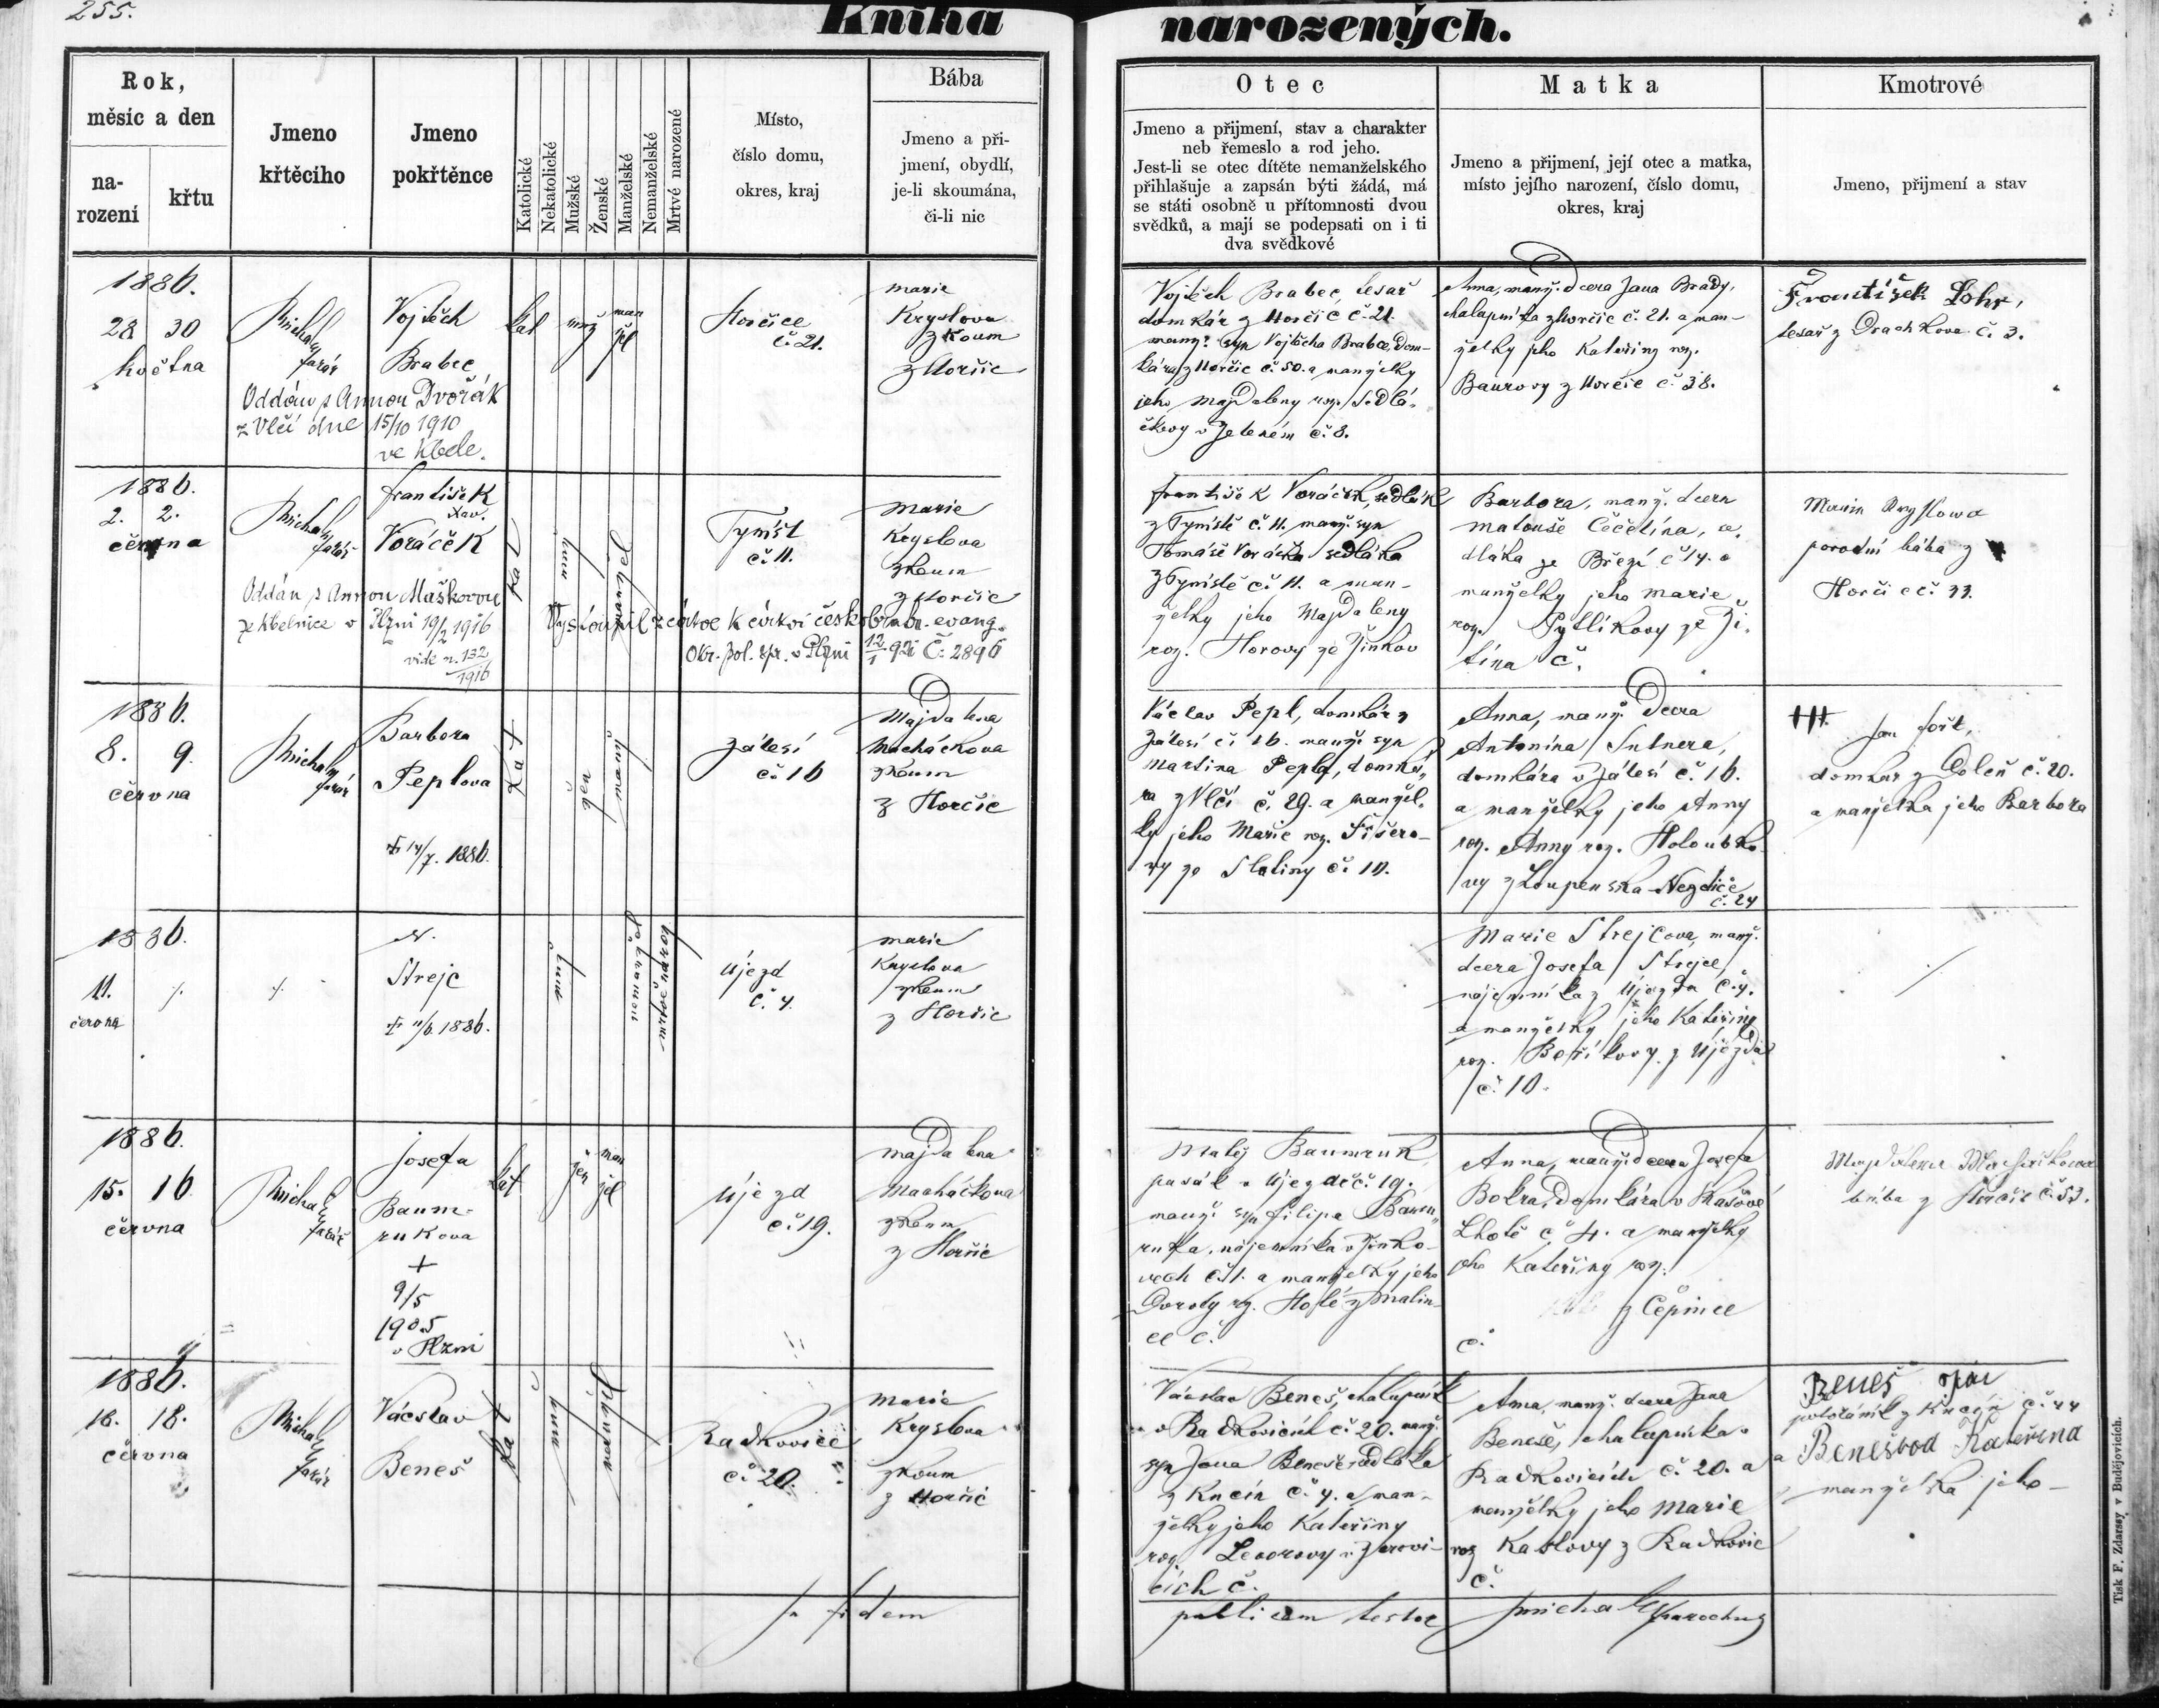 255.
Kniha narozených.
Rok,
měsíc a den
na-
rození
křtu
Jmeno
křtěcího
Jmeno
pokřtěnce
Katolické
Nekatolické
Mužské
Ženské
Manželské
Nemanželské
Mrtvé narozené
Místo,
číslo domu,
okres, kraj
Bába
Jmeno a při-
jmení, obydlí,
je-li skoumána,
či-li nic
Otec
Jmeno a přijmení, stav a charakter
neb řemeslo a rod jeho.
Jest-li se otec dítěte nemanželského
přihlašuje a zapsán býti žádá, má
se státi osobně u přítomnosti dvou
svědků, a mají se podepsati on i ti
dva svědkové
Matka
Jmeno a přijmení, její otec a matka,
místo jejího narození, číslo domu,
okres, kraj
Kmotrové
Jmeno, přijmení a stav
1886.
28 30
května
Michal
farář
Vojtěch
Brabec
Oddán s Annou Dvořák
z Vlčí dne 15/10 1910
ve Kbele.
kat
muž
man
žel
Horčice
č. 21.
marie
Kryslova
zkoum
z Horčic
Vojtěch Brabec, tesař
domkár z Horčic č. 21.
manž. syn Vojtěcha Brabce, dom-
kára z Horčic č. 50. a manželky
jeho Majdaleny roz. Sedlá-
čkovy v Zeleném č. 8.
Anna, manž. dcera Jana Brady,
chalupníka z Horčic č. 21. a man-
želky jeho Kateřiny roz.
Baurovy z Horčic č. 38.
František Lohr,
tesař z Drachkova č. 3.
1886.
2. 2.
června
Michal
farář
František
Xav.
Voráček
Oddán s Annou Maškovou
ze Kbelnice v Plzni 19/2 1916
vide n. 132
1916
kat
muž
manžel
Týništ
č. 11.
Marie
Kryslova
zkoum
z Horčic
Vystoupil z církve k církvi českobratr. evang.
Okr. pol. spr. v Plzni 12/1 921 Č. 2896
František Voráček, sedlák
z Týniště č. 11. manž. syn
Tomáše Voráčka sedláka
z Týniště č. 11. a man-
želky jeho Majdaleny
roz. Horovy ze Žinkov
Barbora, manž. dcera
Matouše Čočelína, se-
dláka ze Březí č. 14. a
manželky jeho Marie
roz. Pytlíkovy ze Ži-
tína č.
Marie Kryslowa
porodní bába z
Horčic č. 33.
1886.
8. 9.
června
Michal
farář
Barbora
Peplova
† 14/7. 1886.
kat
žen
manž
Zálesí
č. 16
Majdalena
Macháčkova
zkoum
z Horčic
Václav Pepl, domkár z
Zálesí č. 16. manž. syn
Martina Pepla, domká-
ra z Vlčí č. 29. a manžel-
ky jeho Marie roz. Fišero-
vy ze Slatiny č. 10.
Anna, manž. dcera
Antonína Sutnera,
domkára v Zálesí č. 16.
a manželky jeho Anny
roz. Anny roz. Holoubko-
vy z Loupenska-Nezdice
č. 24
Jan Fošt,
domkar z Doleň č. 20.
a manželka jeho Barbora
1886.
11.
června
N.
Strejc
† 11/6. 1886.
muž
Újezd
č. 4.
marie
Kryslova
zkoum
z Horčic
Marie Strejcova, manž.
dcera Josefa Strejce,
nájemníka z Újezda č. 4.
a manželky jeho Kateřiny
roz. Bořikovy z Újezda
č. 10.
1886.
15. 16
června
Michal
farář
Josefa
Baum-
rukova
+
9/5
1905
v Plzni
kat
žen
man
žel
Újezd
č. 19.
majdalena
Macháčkova
zkoum
z Horčic
Matěj Baumruk
pasák v Újezdě č. 19.
manž. syn Filipa Baum-
ruka, nájemníka v Žinko-
vech č. 1. a manželky jeho
Doroty roz. Holé z Malin-
ce č.
Anna, manž. dcera Josefa
Bokra, domkára v Kašově
Lhotě č. 4. a manželky
jeho Kateřiny roz.
z Čepince
č.
Majdalena Macháčkowa
bába z Horčic č. 53.
1886.
16. 18.
června
Michal
farář
Václav
Beneš
kat
muž
manžel
Radkovice
č. 20.
Marie
Kryslova
zkoum
z Horčic
Václav Beneš, chalupník
v Radkovicích č. 20. manž.
syn Jana Beneše sedláka
z Kucín č. 4. a man-
želky jeho Kateřiny
roz.
cích č.
Anna, manž. dcera Jana
Beneše, chalupníka v
Radkovicích č. 20. a
manželky jeho Marie
roz. Kaslovy z Radkovic
č.
Beneš Jan
z Kucín č. 44
a Benešová Kateřina
manželka jeho
In fidem
publicam testor
Michal parochus
Tisk F. Zdarssy v Budějovicích.